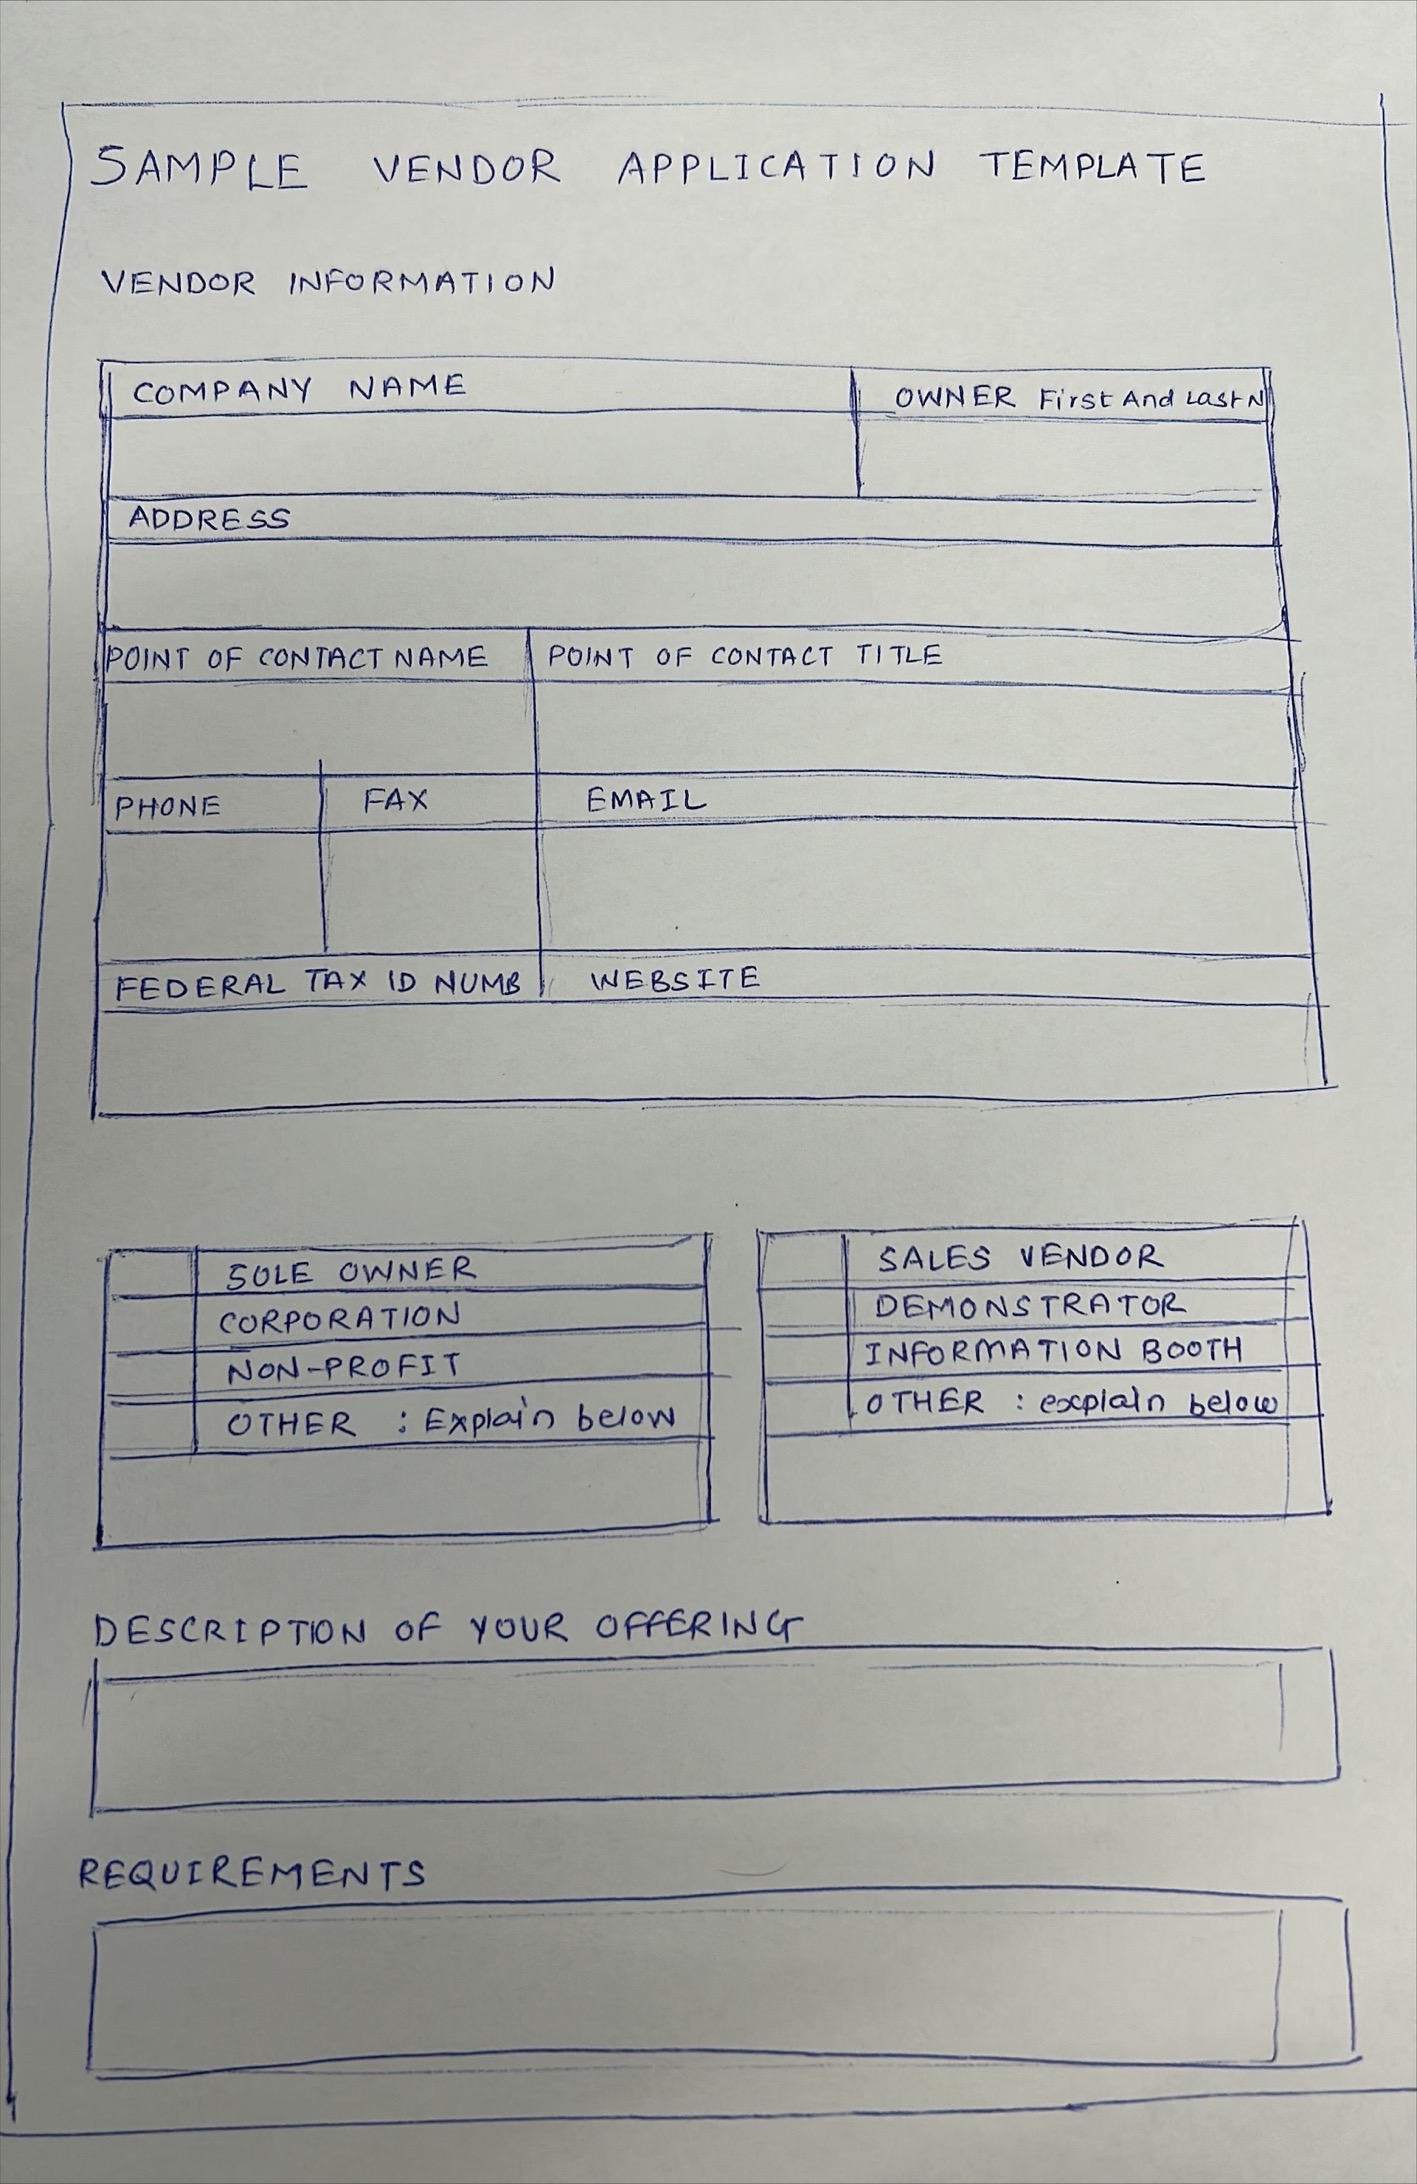 SAMPLE VENDOR APPLICATION TEMPLATE
VENDOR INFORMATION
COMPANY NAME
OWNER First And Last N
ADDRESS
POINT OF CONTACT NAME
POINT OF CONTACT TITLE
PHONE
FAX
EMAIL
FEDERAL TAX ID NUMB
WEBSITE
SOLE OWNER
CORPORATION
NON-PROFIT
OTHER : Explain below
SALES VENDOR
DEMONSTRATOR
INFORMATION BOOTH
OTHER : explain below
DESCRIPTION OF YOUR OFFERING
REQUIREMENTS